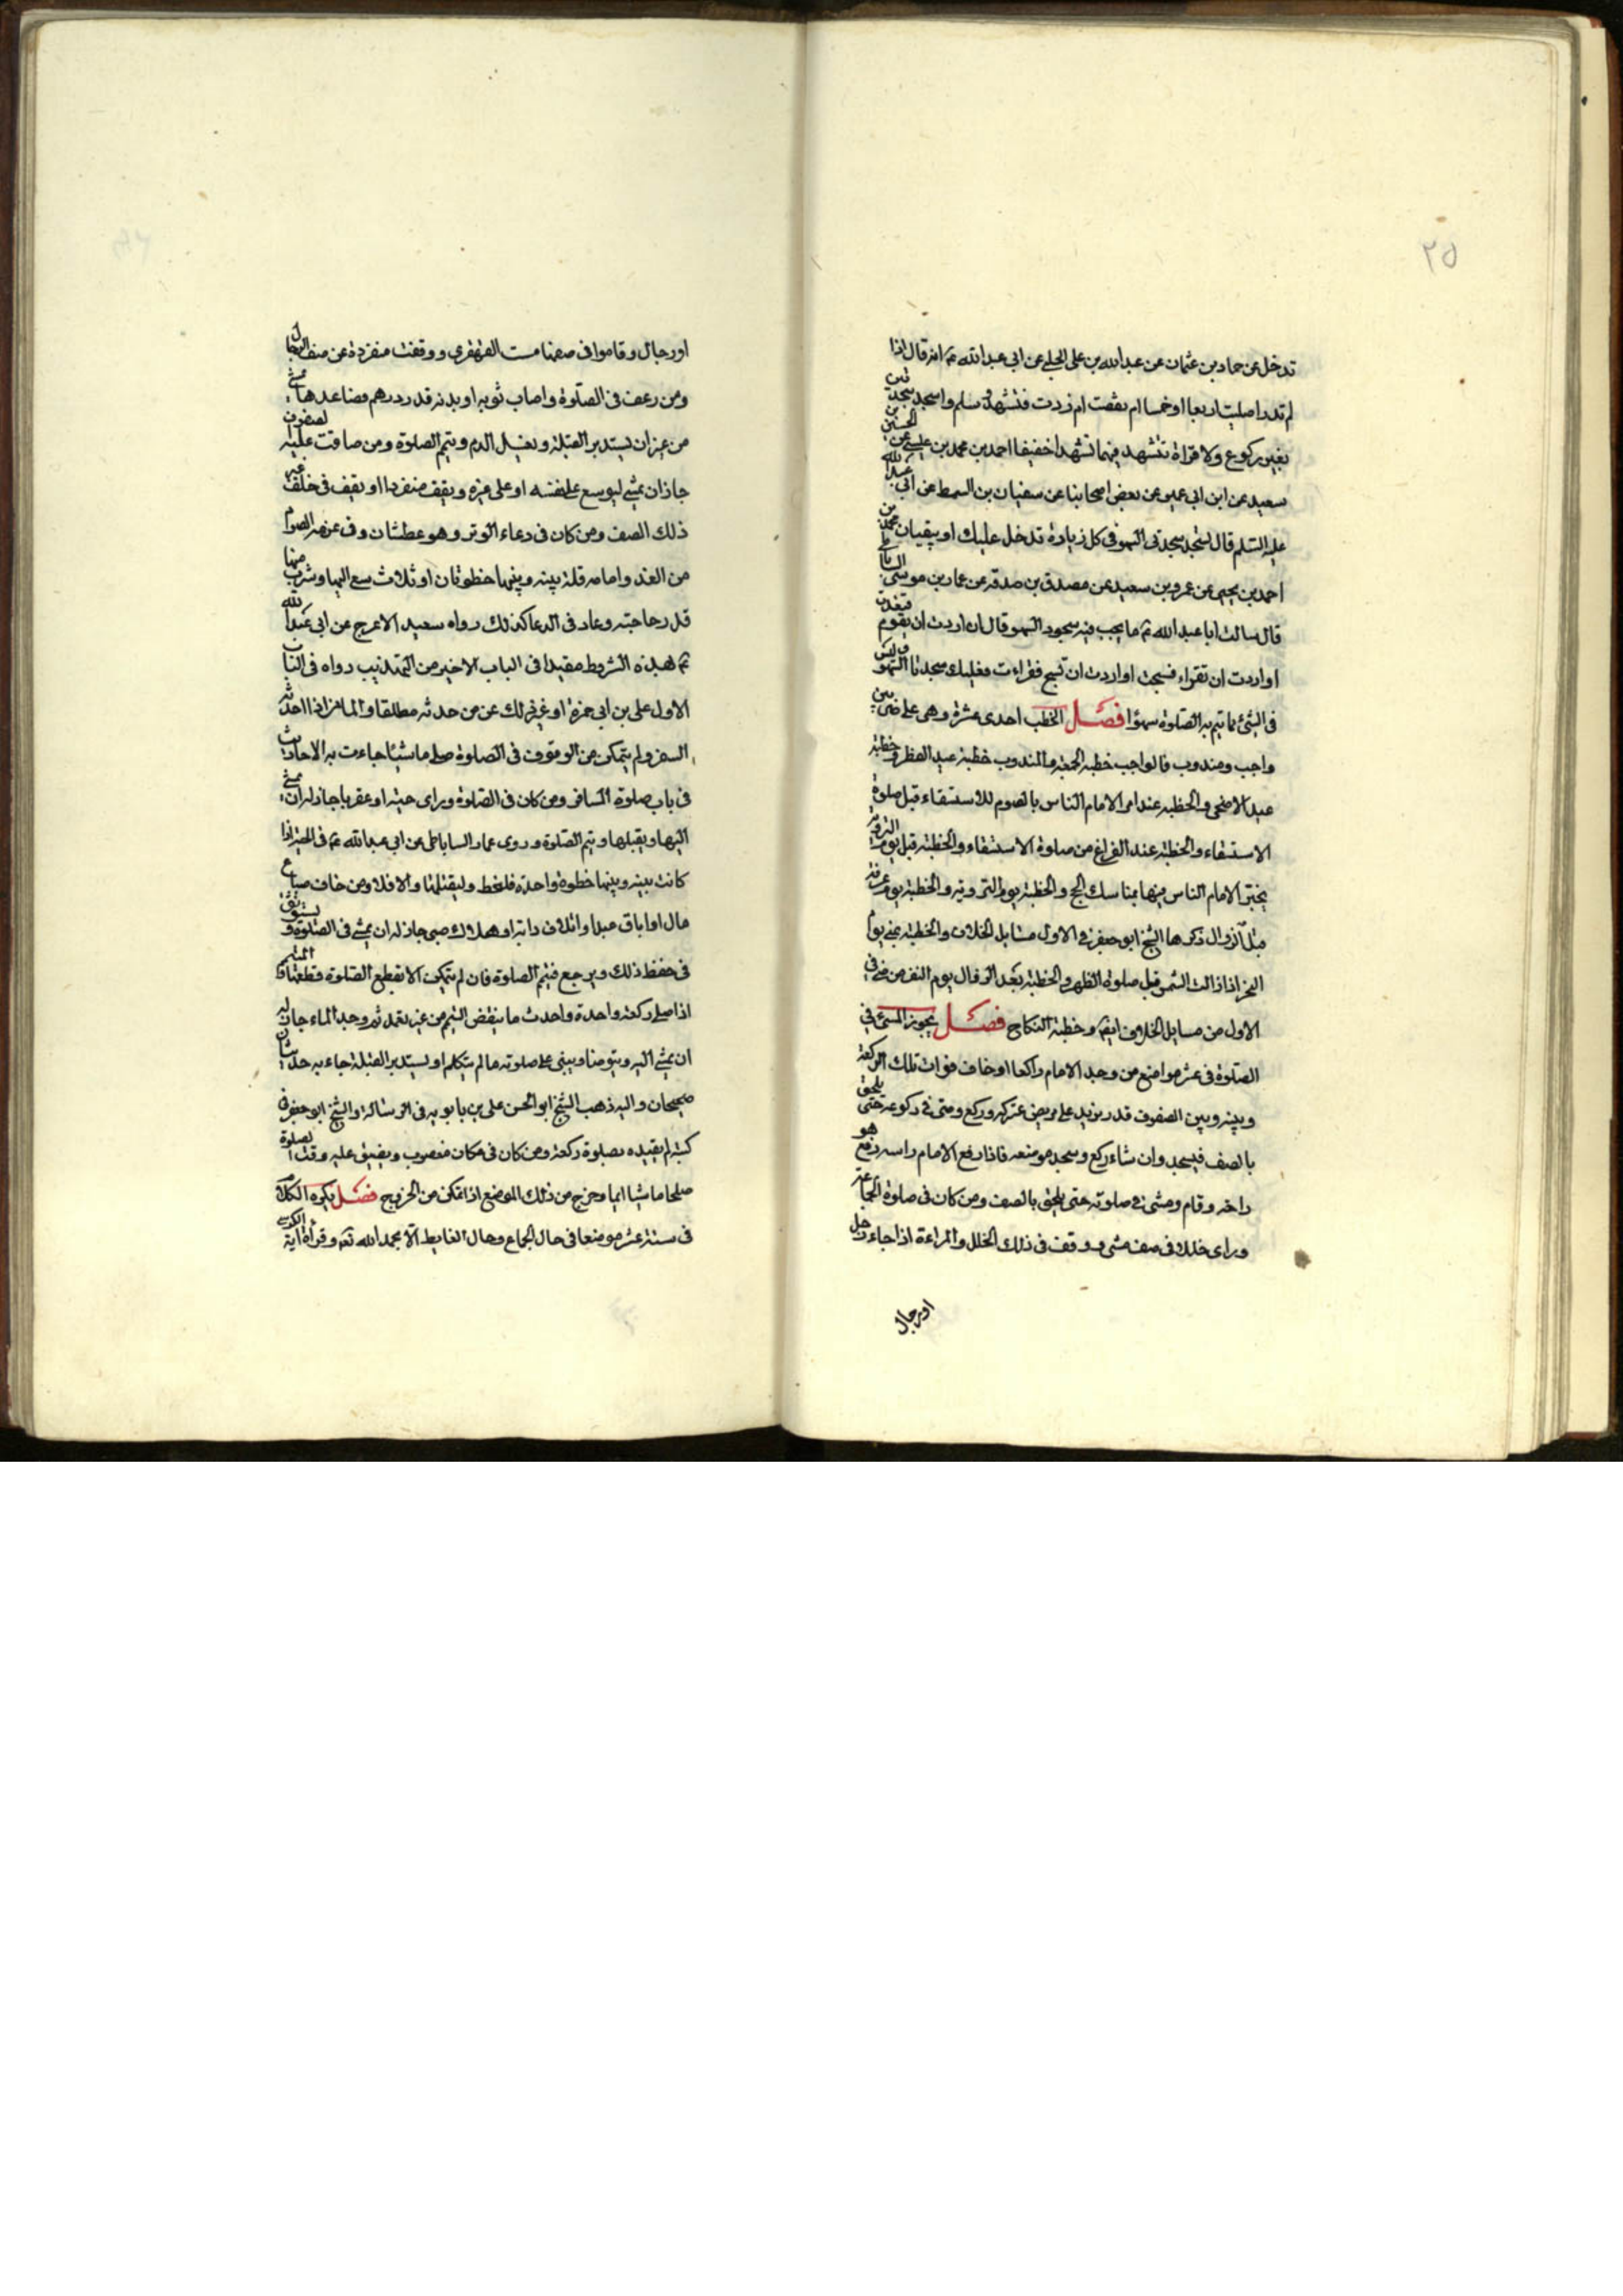 ٢٥
تدخل عن حماد بن عثمان عن عبدالله بن على الحلبى عن ابى عبدالله ع انه قال اذا
لم تدر اصليت اربعا او خمسا ام نقصت ام زدت فتشهد وسلم واسجد سجدتين
بغير ركوع ولا قراة تتشهد فيهما تشهدا خفيفا احمد بن محمد بن عيسى عن الحسين بن
سعيد عن ابن ابى عمير عن بعض اصحابنا عن سفيان بن السمط عن ابى عبدالله
عليه السلم قال تسجد سجدتى السهو فى كل زيادة تدخل عليك او نقصان محمد بن
احمد بن يحيى عن عمرو بن سعيد عن مصدق بن صدقه عن عمار بن موسى الساباطى
قال سالت ابا عبدالله ع ما يجب فيه سجود السهو قال ان اردت ان تقوم فقعدت
او اردت ان تقراء فسبحت او اردت ان تسبح فقراءت فعليك سجدتا السهو وليس
فى الشئ مما تتم به الصلوة سهوا فصل الخطب احدى عشرة وهى على ضربين
واجب ومندوب فالواجب خطبه الجمعة والمندوب خطبة عيد الفطر وخطبة
عيد الاضحى والخطبه عند امر الامام الناس بالصوم للاستسقاء قبل صلوة
الاستسقاء والخطبة عند الفراغ من صلوة الاستسقاء والخطبة قبل يوم التروية
يخبر الامام الناس فيها بمناسك الحج والخطبة يوم التروية والخطبة يوم عرفة
قبل الزوال ذكرها الشيخ ابو جعفر فى الاول مسايل الخلاف والخطبة بمنى يوم
النحر اذا زالت الشمس قبل صلوة الظهر والخطبة بعد الزوال يوم النفر من منى فى
الاول من مسايل الخلاف ايضا وخطبة النكاح فصل يجوز المشى فى
الصلوة فى عشر مواضع من وجد الامام راكعا او خاف فوات تلك الركعة
وبينه وبين الصفوف قدر يزيد على مربض عنز كبر وركع ومشى فى ركوعه حتى يلحق
بالصف فيسجد وان شاء ركع وسجد موضعه فاذا رفع الامام راسه رفع هو
راسه وقام ومشى فى صلوته حتى يلحق بالصف ومن كان فى صلوة الجماعة
وراى خللا فى صف مشى ووقف فى ذلك الخلل والمراءة اذا جاء رجل
او رجال
او رجال وقاموا فى صفها مشت القهقرى ووقفت منفردة عن صف الرجال
ومن رعف فى الصلوة واصاب ثوبه او بدنه قدر درهم فصاعدا مشى
من غير ان يستدبر القبلة وغسل الدم ويتم الصلوة ومن ضاقت عليه الصفوف
جاز ان يمشى ليوسع على نفسه او على غيره ويقف منفردا او يقف فى خلف غير
ذلك الصف ومن كان فى دعاء الوتر وهو عطشان وفى عزمه الصوم
من الغد وامامه قلة بينه وبينها خطوتان او ثلاث سع اليها وشرب منها
قدر حاجته وعاد فى الدعا كذلك رواه سعيد الاعرج عن ابى عبدالله
ع بهذه الشروط مقيدا فى الباب الاخير من التهذيب رواه فى الباب
الاول على بن ابى حمزة او غيره لك عن من حدثه مطلقا والمسافر اذا احدثه
السفر ولم يتمكن من الوقوف فى الصلوة صلى ماشيا جاءت به الاحاديث
فى باب صلوة المسافر ومن كان فى الصلوة وراى حية او عقربا جاز له ان يمشى
اليها ويقتلها ويتم الصلوة وروى عمار الساباطى عن ابى عبدالله ع فى الحية اذا
كانت بينه وبينها خطوة واحدة فليخط وليقتلها والا فلا ومن خاف ضياع
مال او اباق عبد او اتلاف دابة او هلاك صبى جاز له ان يمشى فى الصلوة ويستوثق
فى حفظ ذلك ويرجع فيتم الصلوة فان لم يتمكن الا بقطع الصلوة قطعها والمتيمم
اذا صلى ركعة واحدة واحدث ما ينقض التيمم من غير تعمد ثم وجد الماء جاز له
ان يمشى اليه ويتوضا ويبنى على صلوته ما لم يتكلم او يستدبر القبلة جاء به حديثان
صحيحان واليه ذهب الشيخ ابو الحسن على بن بابويه فى الرسالة والشيخ ابو جعفر فى
كتبه لم يقيده بصلوة ركعة ومن كان فى مكان مغصوب ويضيق عليه وقت الصلوة
صلاها ماشيا ايما وخرج من ذلك الموضع اذا تمكن من الخروج فصل يكره الكلام
فى ستة عشر موضعا فى حال الجماع وحال الغايط الا بحمد الله تع وقراة اية الكرسى